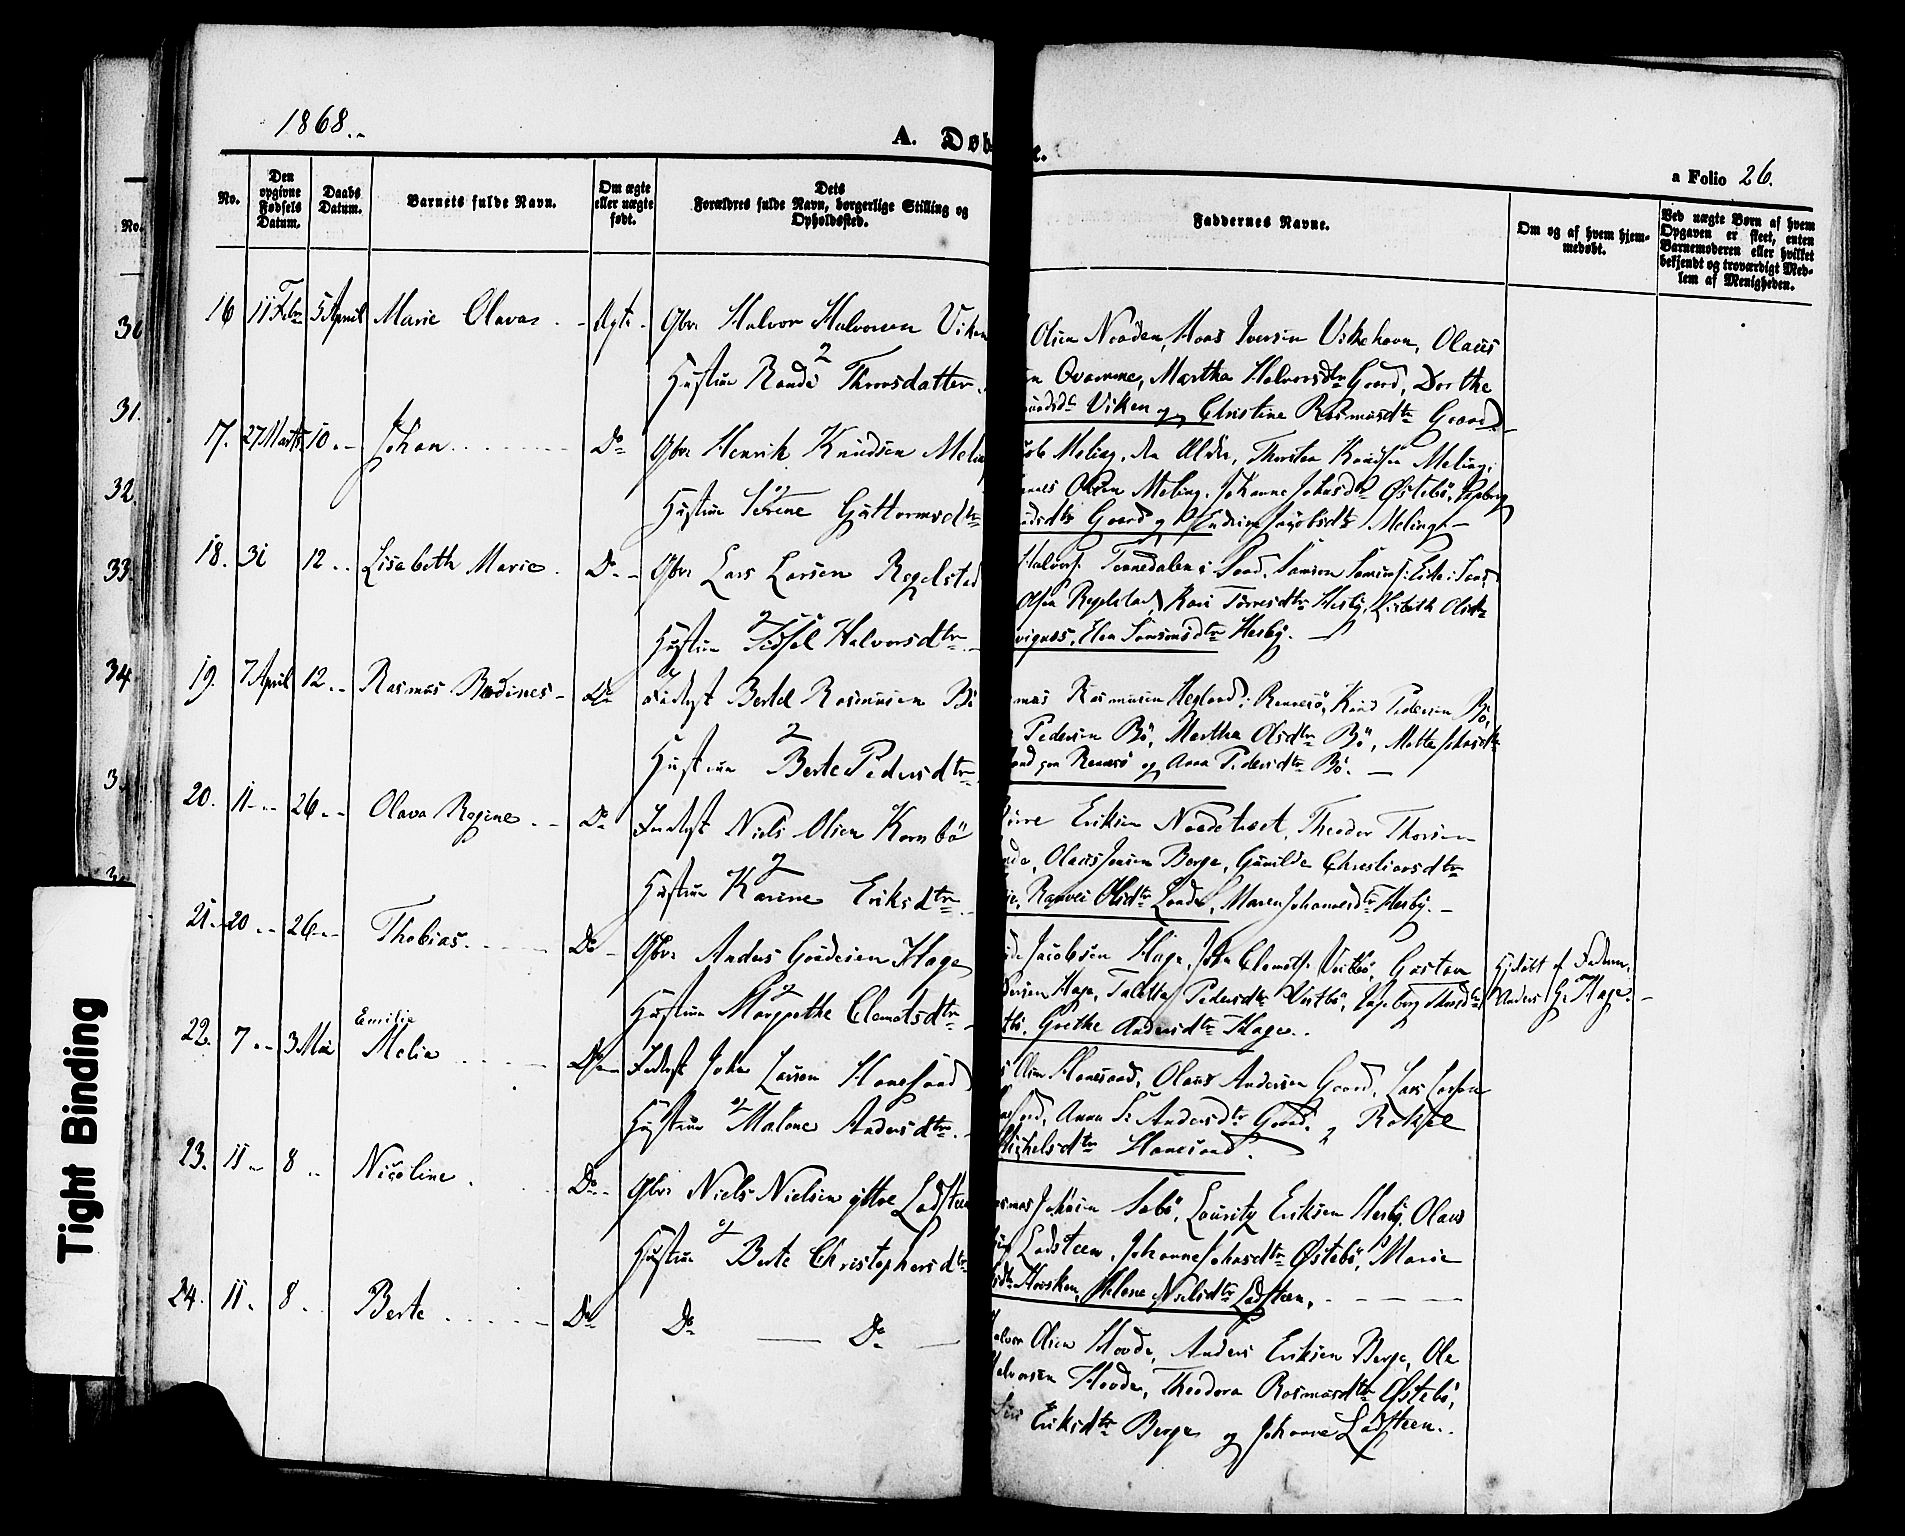 1868.
A. Døb
e.
a Folio 26.
No.
Den opgivne Fødsels Datum.
Daabs Datum.
Barnets fulde Navn.
Om ægte eller uægte født.
Dets Forældres fulde Navn, borgerlige Stilling og Opholdssted.
Faddernes Navne.
Om og af hvem hjemmedøbt.
Ved uægte Børn af hvem Opgaven er skeet, enten Barnemoderen eller hvilket bekjendt og troværdigt Medlem af Menigheden.
No.
30
31.
32.
33.
34
16 11 Febr 5 April Marie Olava Ægte Gbr Halvor Halvorsen Viken
Hustru Thorsdatter
Olsen Norden, Iversen Vikehavn, Olaus
Qvamme, Martha Halvorsdtr Gaard, Dorthe
Viken og Christine Rasmusdtr Gaard
17. 27 Marts 10 Johan Do Gbr Henrik Knudsen Meling
Hustru Serene Guttormsdtr
Meling, den Ældre, Thorsten Knudsen Meling
Olsen Meling, Johanne Johnsdtr Østebö, Ingeborg
Gaard og Jacobsdtr Meling
18. 31 12 Lisabeth Marie Do Gbr Lars Larsen Regelstad
Hustru Halvorsdtr
Halvors. i Sand, Samson
Olsen Regelstad, Kari Heeby, Lisbeth Olsdtr
Elen Samsonsdtr Hesby.
19. 7 April 12 Rasmus Bodines Do Inderst Bertel Rasmussen Bö
Hustru Berte Pedersdtr
Rasmussen Hegland i Rennesö, Knud Pedersen Bö,
Pedersen Bö, Martha Olsdtr Bö, Mette Johnsdtr
paa Rennesö og Anna Pedersdtr Bö.
20. 11 26 Olava Regine Do Inderst Niels Olsen Kornbö
Hustru Karine Eriksdtr
Eriksen Theodor Thorsen
Olaus Jensen Berge, Gunilde Christiansdtr
Ranvei Olsdtr Maren Johannesdtr Hesby.
21. 20 26 Thobias Do Gbr Anders Hage
Hustru Margrethe Clemetsdtr
Jacobsen Hage, John Clemets. Vestbö, Gustav
Hage, Pedersdtr Vestbö, Ingeborg
Grethe Andersdtr Hage.
Hjdøbt af Faderen,
Anders G. Hage.
22. 7 3 Mai Emilie
Melie Do Inderst John Larsen Hanesand
Hustru Malene Andersdtr.
Olsen Hanesand, Olaus Andersen Gaard, Lars Larsen
Anna S. Andersdtr Gaard, og
Michelsdtr Hanesand.
23. 11 8 Nicoline Do Gbr Niels Nielsen yttre Ladsteen
Hustru Berte Christophersdtr
Johnsen Sæbö, Lauritz Eriksen Hesby, Olaus
Ladsteen, Johanne Johnsdtr Østebö, Marie
Helene Nielsdtr Ladsteen.
24. 11. 8 Berte Do Do Do
Halvor Olsen Hovda, Anders Eriksen Berge, Ole
Halvorsen Hovda, Theodora Rasmusdtr Østebö,
Eriksdtr Berge og Johanne Ladsteen.
Tight Binding